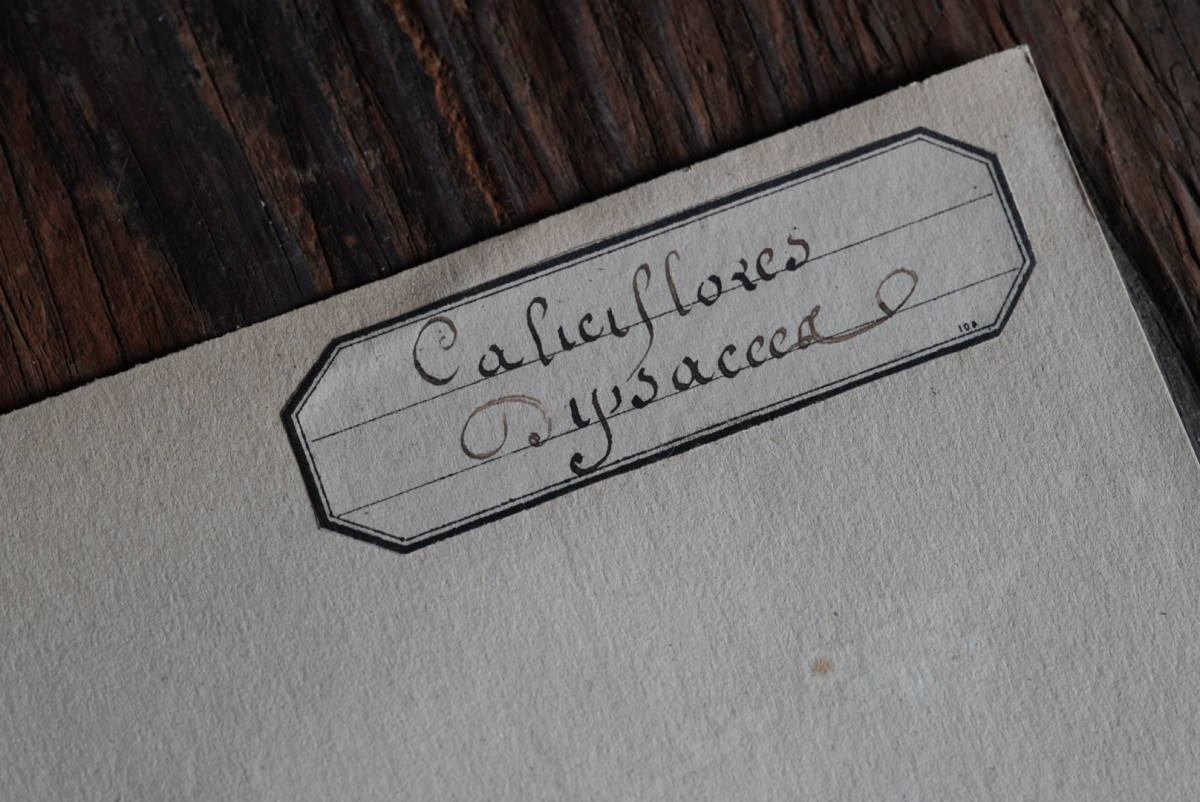 Caliciflores
Dypsaceea
108